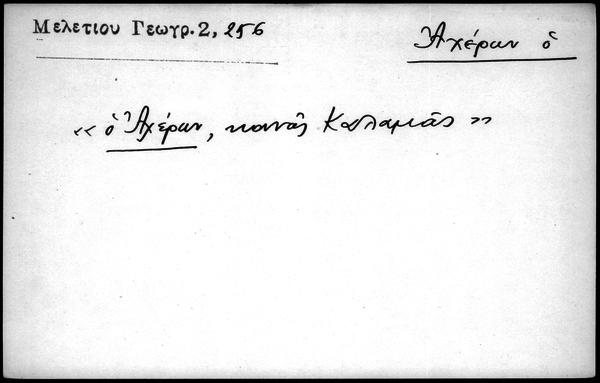 Μελετίου Γεωγρ. 2, 256
Ἀχέρων ὁ
« ὁ Ἀχέρων, κοινῶς Καλαμᾶς »